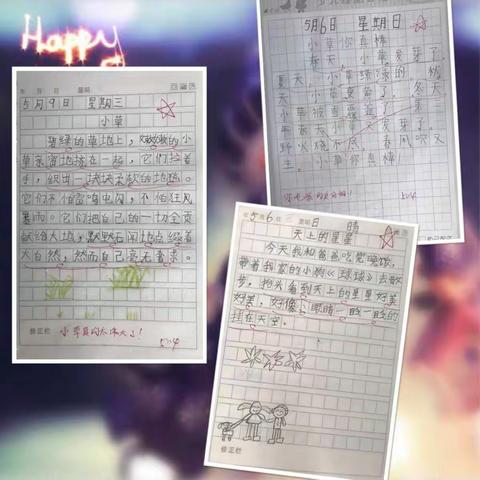 Happy
5月9日 星期三
小草
碧绿的草地上，嫩嫩的小
草亲密地挨在一起，它们拉着
手，织出一块块柔软的地毯。
它们不怕雷鸣电闪，不怕狂风
暴雨。它们把自己的一切全贡
献给大地，默默无闻地点缀着
大自然，然而自己毫无奢求。
修正栏
小草真的太伟大了！
5月6日 星期日
小草你真棒
春天，小草发芽了，
夏天，小草绿绿的，秋
天，小草变黄了，冬天，
年春天，小草又发芽了。
野火烧不尽，春风吹又
生。小草你真棒！
5月6日 星期日 晴
天上的星星
今天我和爸爸吃完晚饭，
带着我家的小狗《球球》去散
步，抬头看到天上的星星好美
好美，好像眼睛一眨一眨的
挂在天空。
修正栏